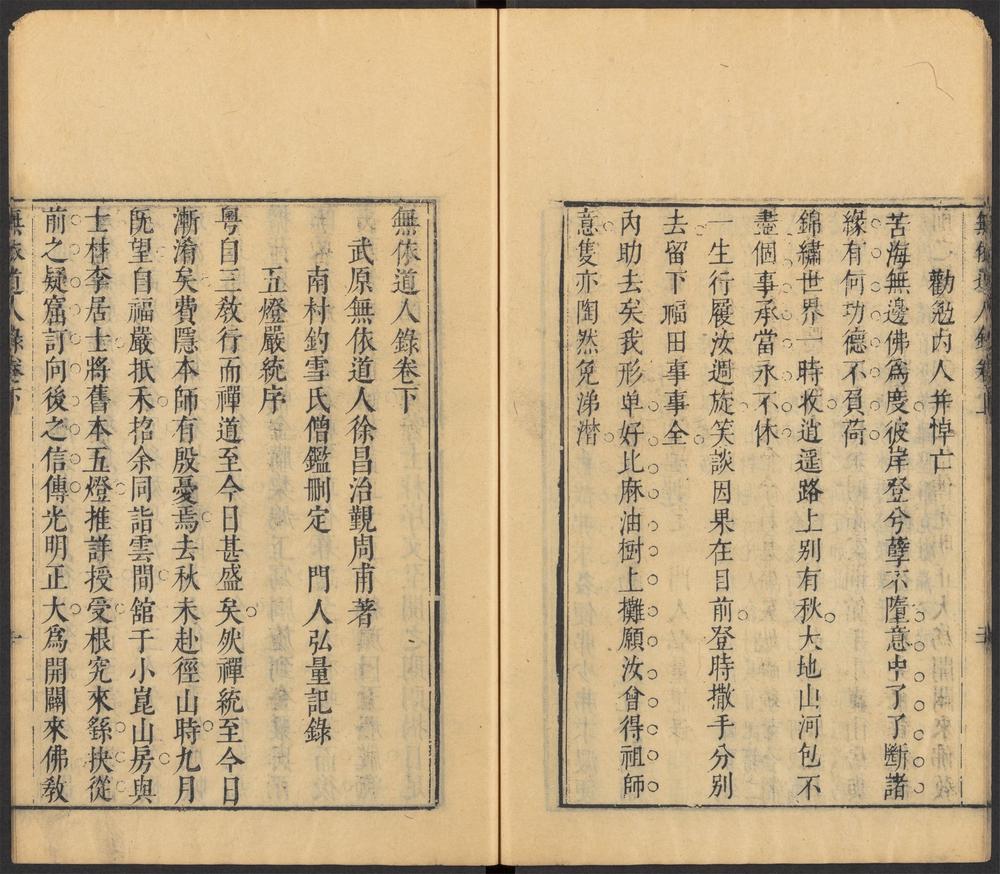 無依道人錄卷上
勸勉內人并悼亡
苦海無邊佛爲度彼岸登兮孽不墮意中了了斷諸
緣有何功德不負荷
錦繡世界一時收逍遥路上别有秋大地山河包不
盡個事承當永不休
一生行履汝週旋笑談因果在目前登時撒手分别
去留下福田事事全
內助去矣我形单好比麻油樹上攤願汝曾得祖師
意隻亦陶然免涕潸
無依道人錄卷下
武原無依道人徐昌治覲周甫著
南村釣雪氏僧鑑刪定 門人弘量記錄
五燈嚴統序
粤自三教行而禪道至今日甚盛矣然禪統至今日
漸淆矣費隱本師有殷憂焉去秋未赴徑山時九月
旣望自福嚴抵禾招余同詣雲間舘于小崑山房與
士材李居士將舊本五燈推詳授受根究來繇抉從
前之疑窟訂向後之信傳光明正大爲開闢來佛教
無依道人錄卷下